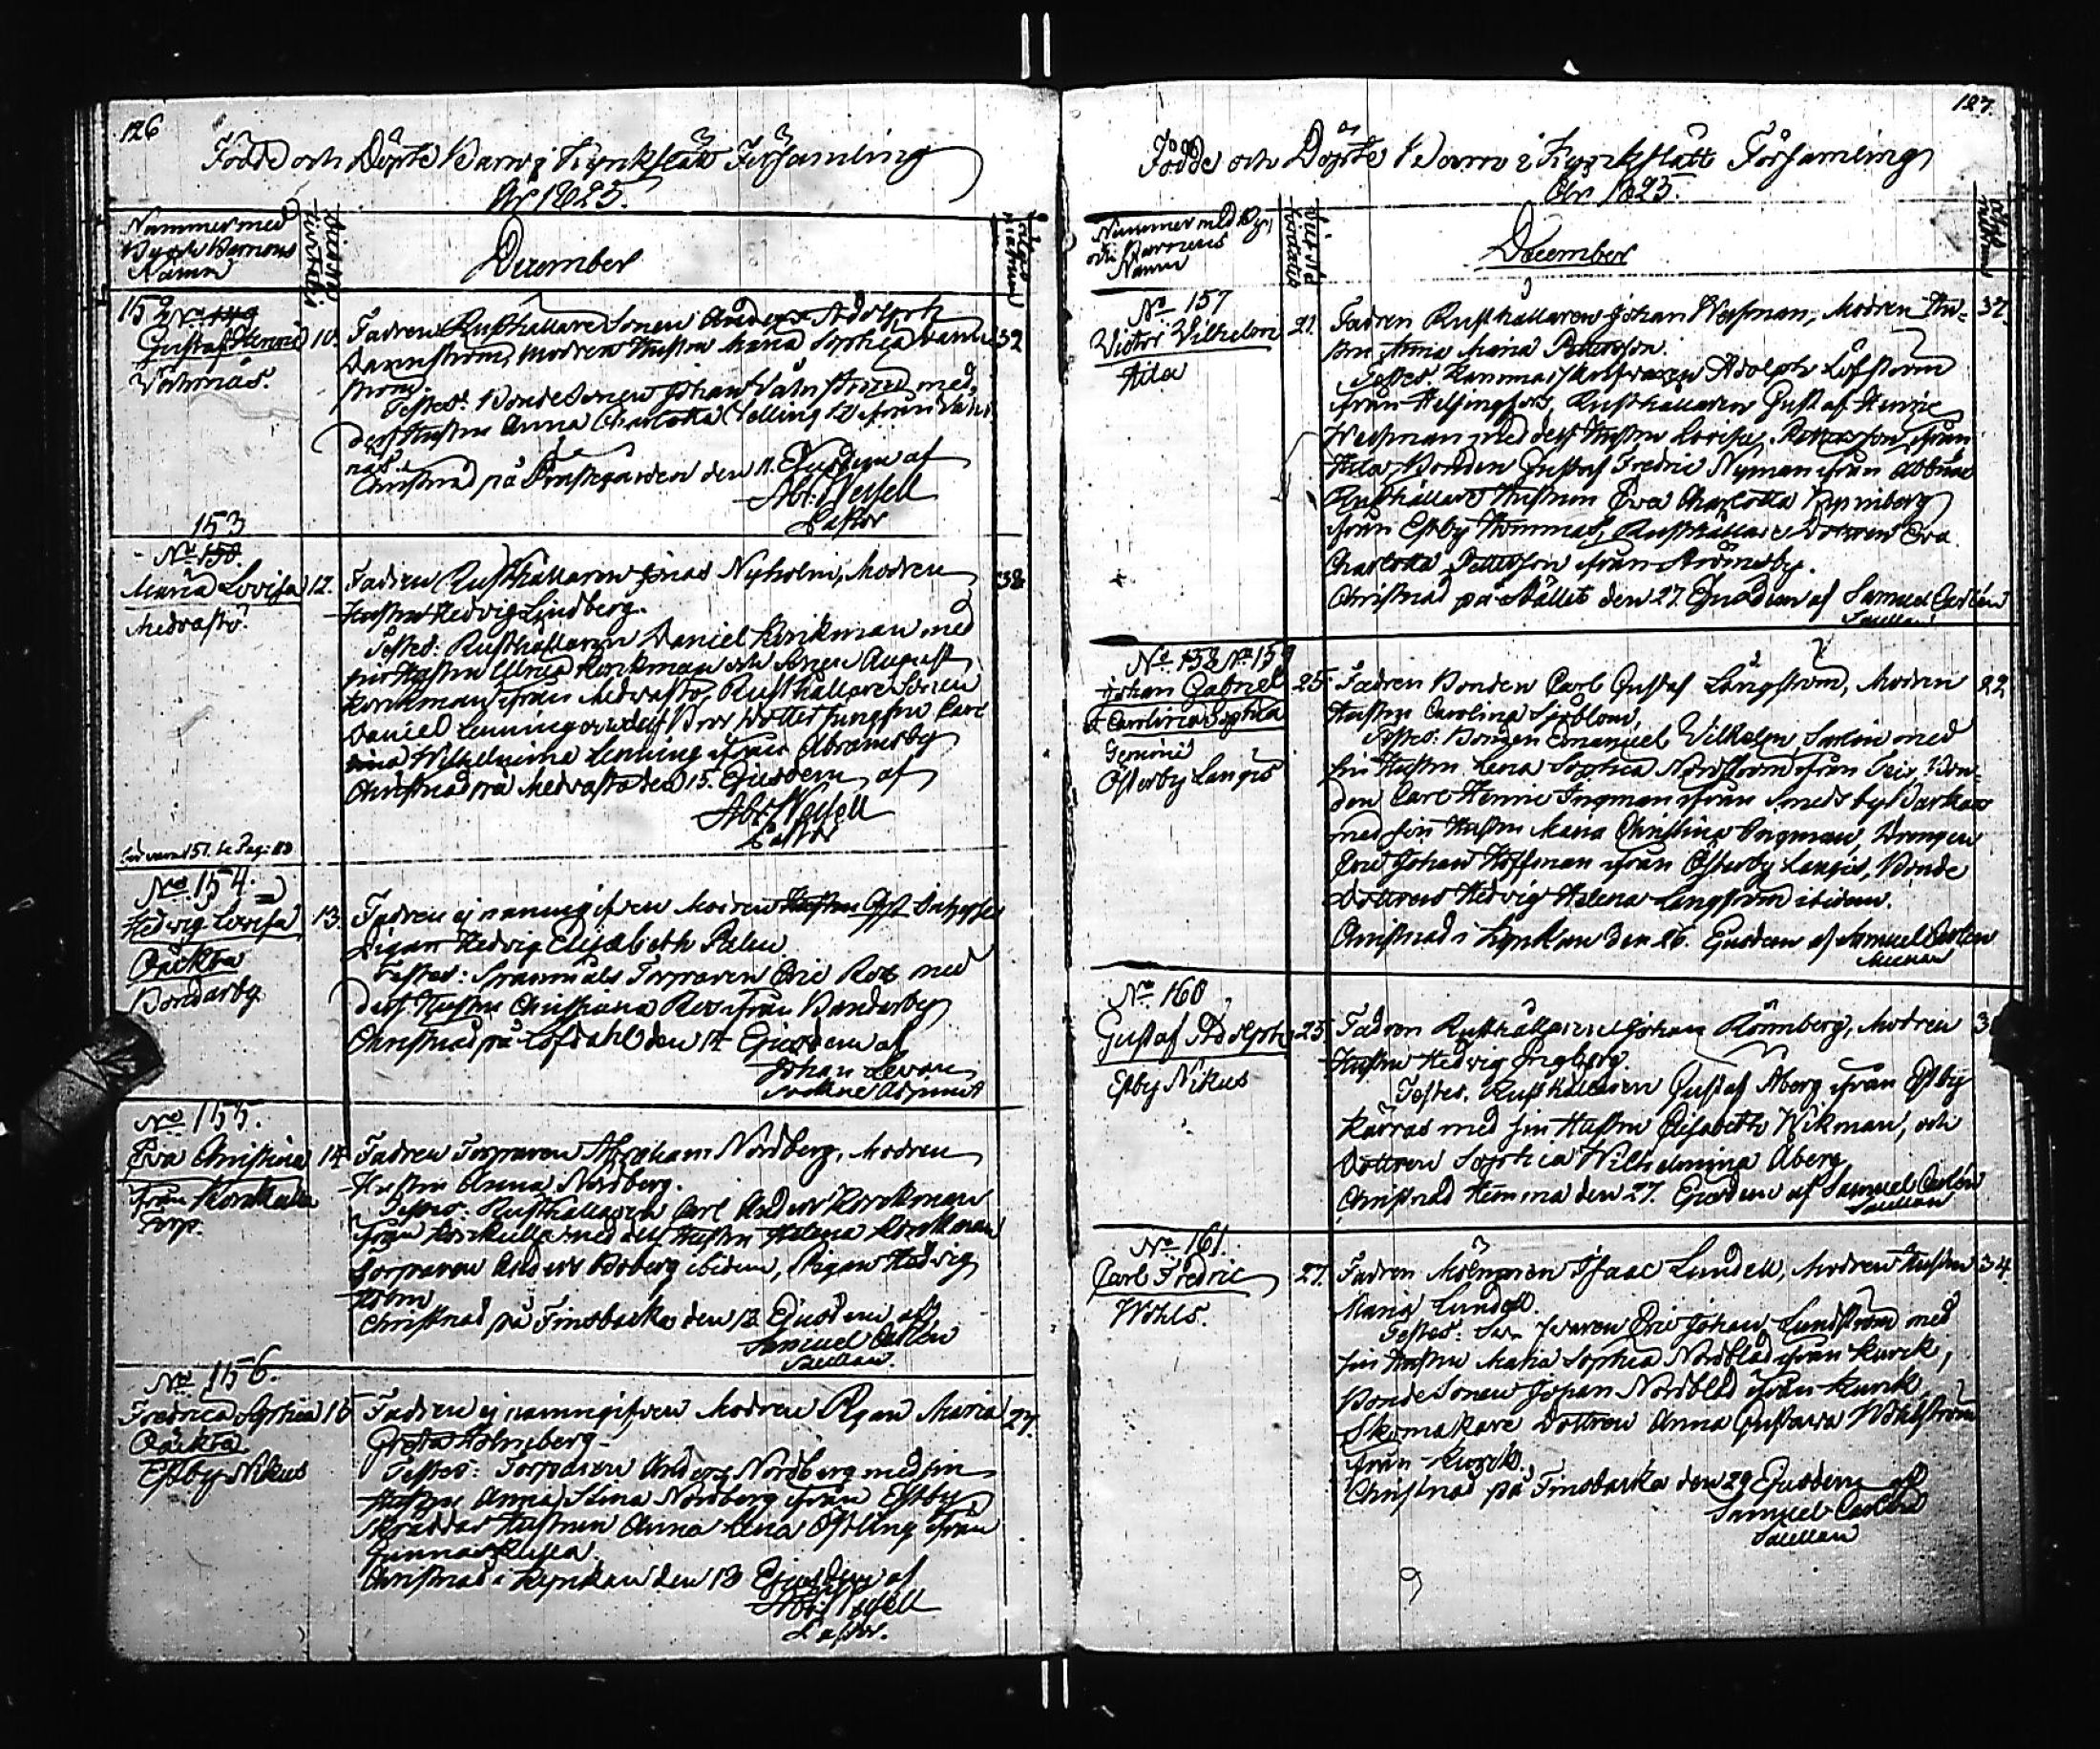 126
Födde och Döpte Barn i Kyrkslätt Församling
År 1825.
Nummer med
Byn och Barnens
Namn
December
152 No 149
Gustaf Henric 10.
Wohrnäs.
Fadren Rusthållare Sonen Anders Adolph
Dannström, modren Hustru Maria Sophia Dann-
ström. 32
Testes: Bonde Sonen Johan med
dess Hustru Anna Charlotta Selling från
näs.
Christnad på Prestegården den 11. Ejusdem af
Abr: Wessell
Pastor
153
No 150.
Maria Lovisa 12.
Medvastö.
Fadren Rusthållaren Jonas Nyholm, Modren 38
Hustru Hedvig Lindberg.
Testes: Rusthållaren Daniel Korckman med
sin Hustru Ulrica Korckman och Sonen August
Korckman från Medvastö, Rusthållare Sonen
Daniel Lenning och dess Bror Dotter Jungfru Caro
lina Wilhelmina Lenning ifrån Abramsby
Christnad på Medvastö den 15. Ejusdem af
Abr: Wessell
Pastor
No 154.
Hedvig Lovisa 13.
Oäckta
Bondarby
Fadren ej namngifven Modren Hustru
Pigan Hedvig Elisabeth Palen
Testes: Spannmåls Torparen Eric Ros med
dess Hustru Christiana Ros ifrån Bondarby
Christnad på Löfdahl den 14 Ejusdem af
Johan Levan
Sockne Adjunct
No 155.
Eva Christina 14
från Korckulla
Torp.
Fadren Torparen Abraham Nordberg, Modren
Hustru Anna Nordberg.
Testes: Rusthållaren Carl Anders Korckman
från Korckulla med dess Hustru Helena Korckman
Torparen Anders Boberg ibidem, Pigan Hedvig
Holm
Christnad på Finsbacka den 18 Ejusdem af
Samuel Carlén
Sacellan.
No 156.
Fredrica Sophia 15
Oäckta
Estby Nikus
Fadren ej namngifven Modren Pigan Maria 27.
Greta Holmberg.
Testes: Torparen Anders Nordberg med sin
Hustru Anna Stina Nordberg ifrån Estby
Skräddar Hustrun Anna Lena Östling ifrån
Gunnarskulla
Christnad i Kyrkan den 18 Ejusdem af
Abr: Wessell
Pastor.
127.
Födde och Döpte Barn i Kyrkslätt Församling
År 1825.
Nummer med Byn
och Barnens
Namn
December
No 157
Victor Vilhelm 21.
Hila
Fadren Rusthållaren Johan Weckman, Modren Hu= 32.
stru Anna Maria Pettersson.
Testes. Adolph Löfström
ifrån Helsingfors, Rusthållaren Gustaf Henric
Weckman med dess Hustru Lovisa Pettersson, ifrån
Hila, Bonden Gustaf Fredric Nyman ifrån
Rusthållare Hustrun Eva Charlotta
ifrån Estby Hommas, Rusthållare Dottren Eva
Charlotta Pettersson ifrån Strömsby.
Christnad på Stället den 27. Ejusdem af Samuel Carlén
Sacellan
No 158 No 159
Johan Gabriel 25.
& Carolina Sophia
Gemini
Österby Långis
Fadren Bonden Carl Gustaf Långström, Modren 22
Hustru Carolina Sjöblom,
Testes: Bonden Emanuel Vilhelm Sarlin med
sin Hustru Lena Sophia Nordström ifrån Teir, Bon=
den Carl Henric Ingman ifrån Smedsby Markas
med sin Hustru Maria Christina Borgman, Drengen
Eric Johan Hoffman ifrån Österby Långis, Bonde
Dottren Hedvig Helena Långström ibidem.
Christnad i Kyrkan den 26. Ejusdem af Samuel Carlén
Sacellan
No 160
Gustaf Adolph 25
Estby Nikus
Fadren Rusthållaren Johan Rönnberg, Modren
Hustru Hedvig Engberg.
Testes. Rusthållaren Gustaf Åberg ifrån Estby
Kärras med sin Hustru Elisabeth Wikman, och
Dottren Sophia Wilhelmina Åberg
Christnad Hemma den 27. Ejusdem af Samuel Carlén
Sacellan
No 161.
Carl Fredric 27.
Wohls.
Fadren Möllnaren Isaac Lundell, Modren Hustru 34.
Maria Lundell.
Testes: Eric Johan Lundström med
sin Hustru Maria Sophia Nordblad ifrån Kurck,
Bonde Sonen Johan Nordblad ifrån Kurck,
Skomakare Dottren Anna Gustava Wohlström
ifrån Kurck.
Christnad på Finsbacka den 29 Ejusdem af
Samuel Carlén
Sacellan